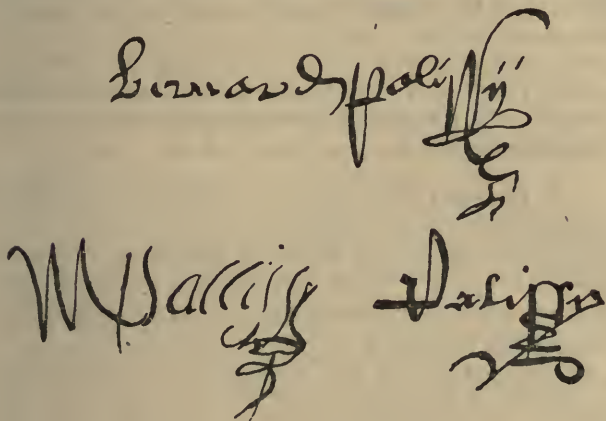 Bernard palissy
M Pallissy Palissy